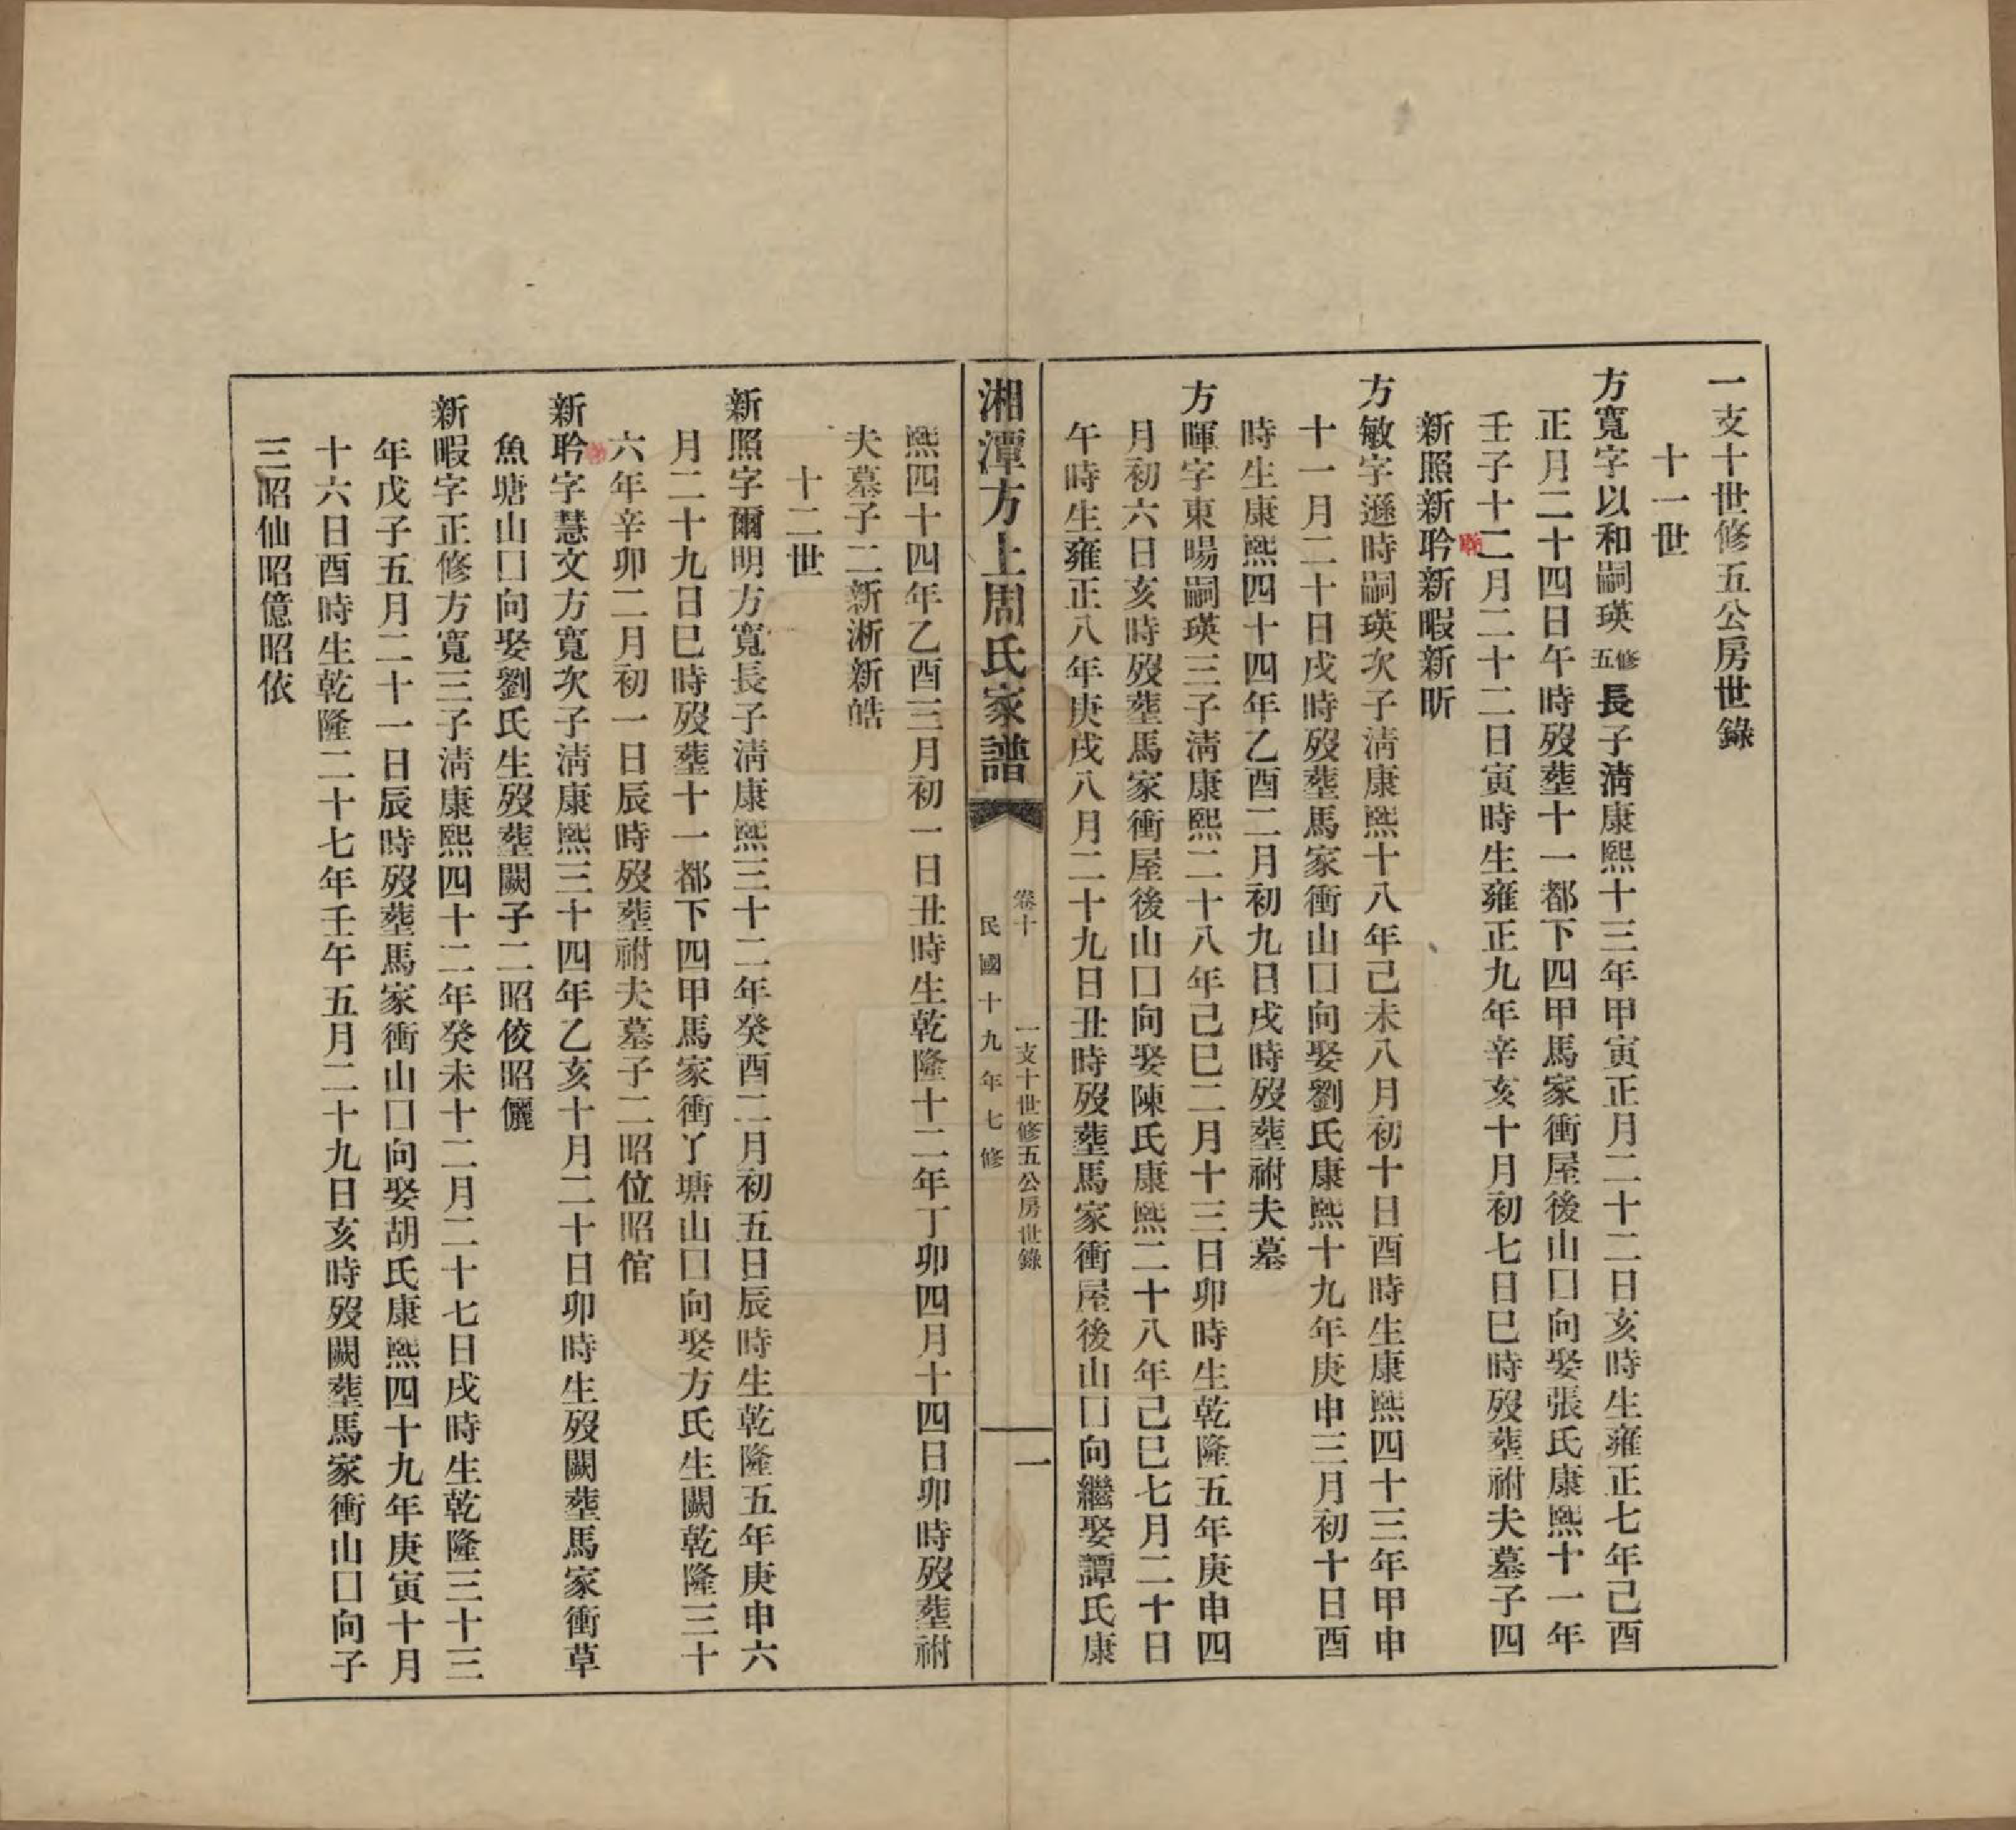 一支十世修五公房世錄
十一世
方寬字以和嗣瑛修五長子淸康熙十三年甲寅正月二十二日亥時生雍正七年己酉
正月二十四日午時歿塟十一都下四甲馬家衝屋後山囗向娶張氏康熙十一年
壬子十二月二十二日寅時生雍正九年辛亥十月初七日巳時歿塟祔夫墓子四
新照新聆新暇新昕
方敏字遜時嗣瑛次子淸康熙十八年己未八月初十日酉時生康熙四十三年甲申
十一月二十日戌時歿塟馬家衝山囗向娶劉氏康熙十九年庚申三月初十日酉
時生康熙四十四年乙酉二月初九日戌時歿塟祔夫墓
方暉字東暘嗣瑛三子淸康熙二十八年己巳二月十三日卯時生乾隆五年庚申四
月初六日亥時歿塟馬家衝屋後山囗向娶陳氏康熙二十八年己巳七月二十日
午時生雍正八年庚戌八月二十九日丑時歿塟馬家衝屋後山囗向繼娶譚氏康
湘潭方上周氏家譜
卷十 一支十世修五公房世錄 一
民國十九年七修
熙四十四年乙酉三月初一日丑時生乾隆十二年丁卯四月十四日卯時歿塟祔
夫墓子二新淅新皓
十二世
新照字爾明方寬長子淸康熙三十二年癸酉二月初五日辰時生乾隆五年庚申六
月二十九日巳時歿塟十一都下四甲馬家衝丫塘山囗向娶方氏生闕乾隆三十
六年辛卯二月初一日辰時歿塟祔夫墓子二昭位昭倌
新聆字慧文方寬次子淸康熙三十四年乙亥十月二十日卯時生歿闕塟馬家衝草
魚塘山囗向娶劉氏生歿塟闕子二昭佼昭儷
新暇字正修方寬三子淸康熙四十二年癸未十二月二十七日戌時生乾隆三十三
年戊子五月二十一日辰時歿塟馬家衝山囗向娶胡氏康熙四十九年庚寅十月
十六日酉時生乾隆二十七年壬午五月二十九日亥時歿闕塟馬家衝山囗向子
三昭仙昭億昭依